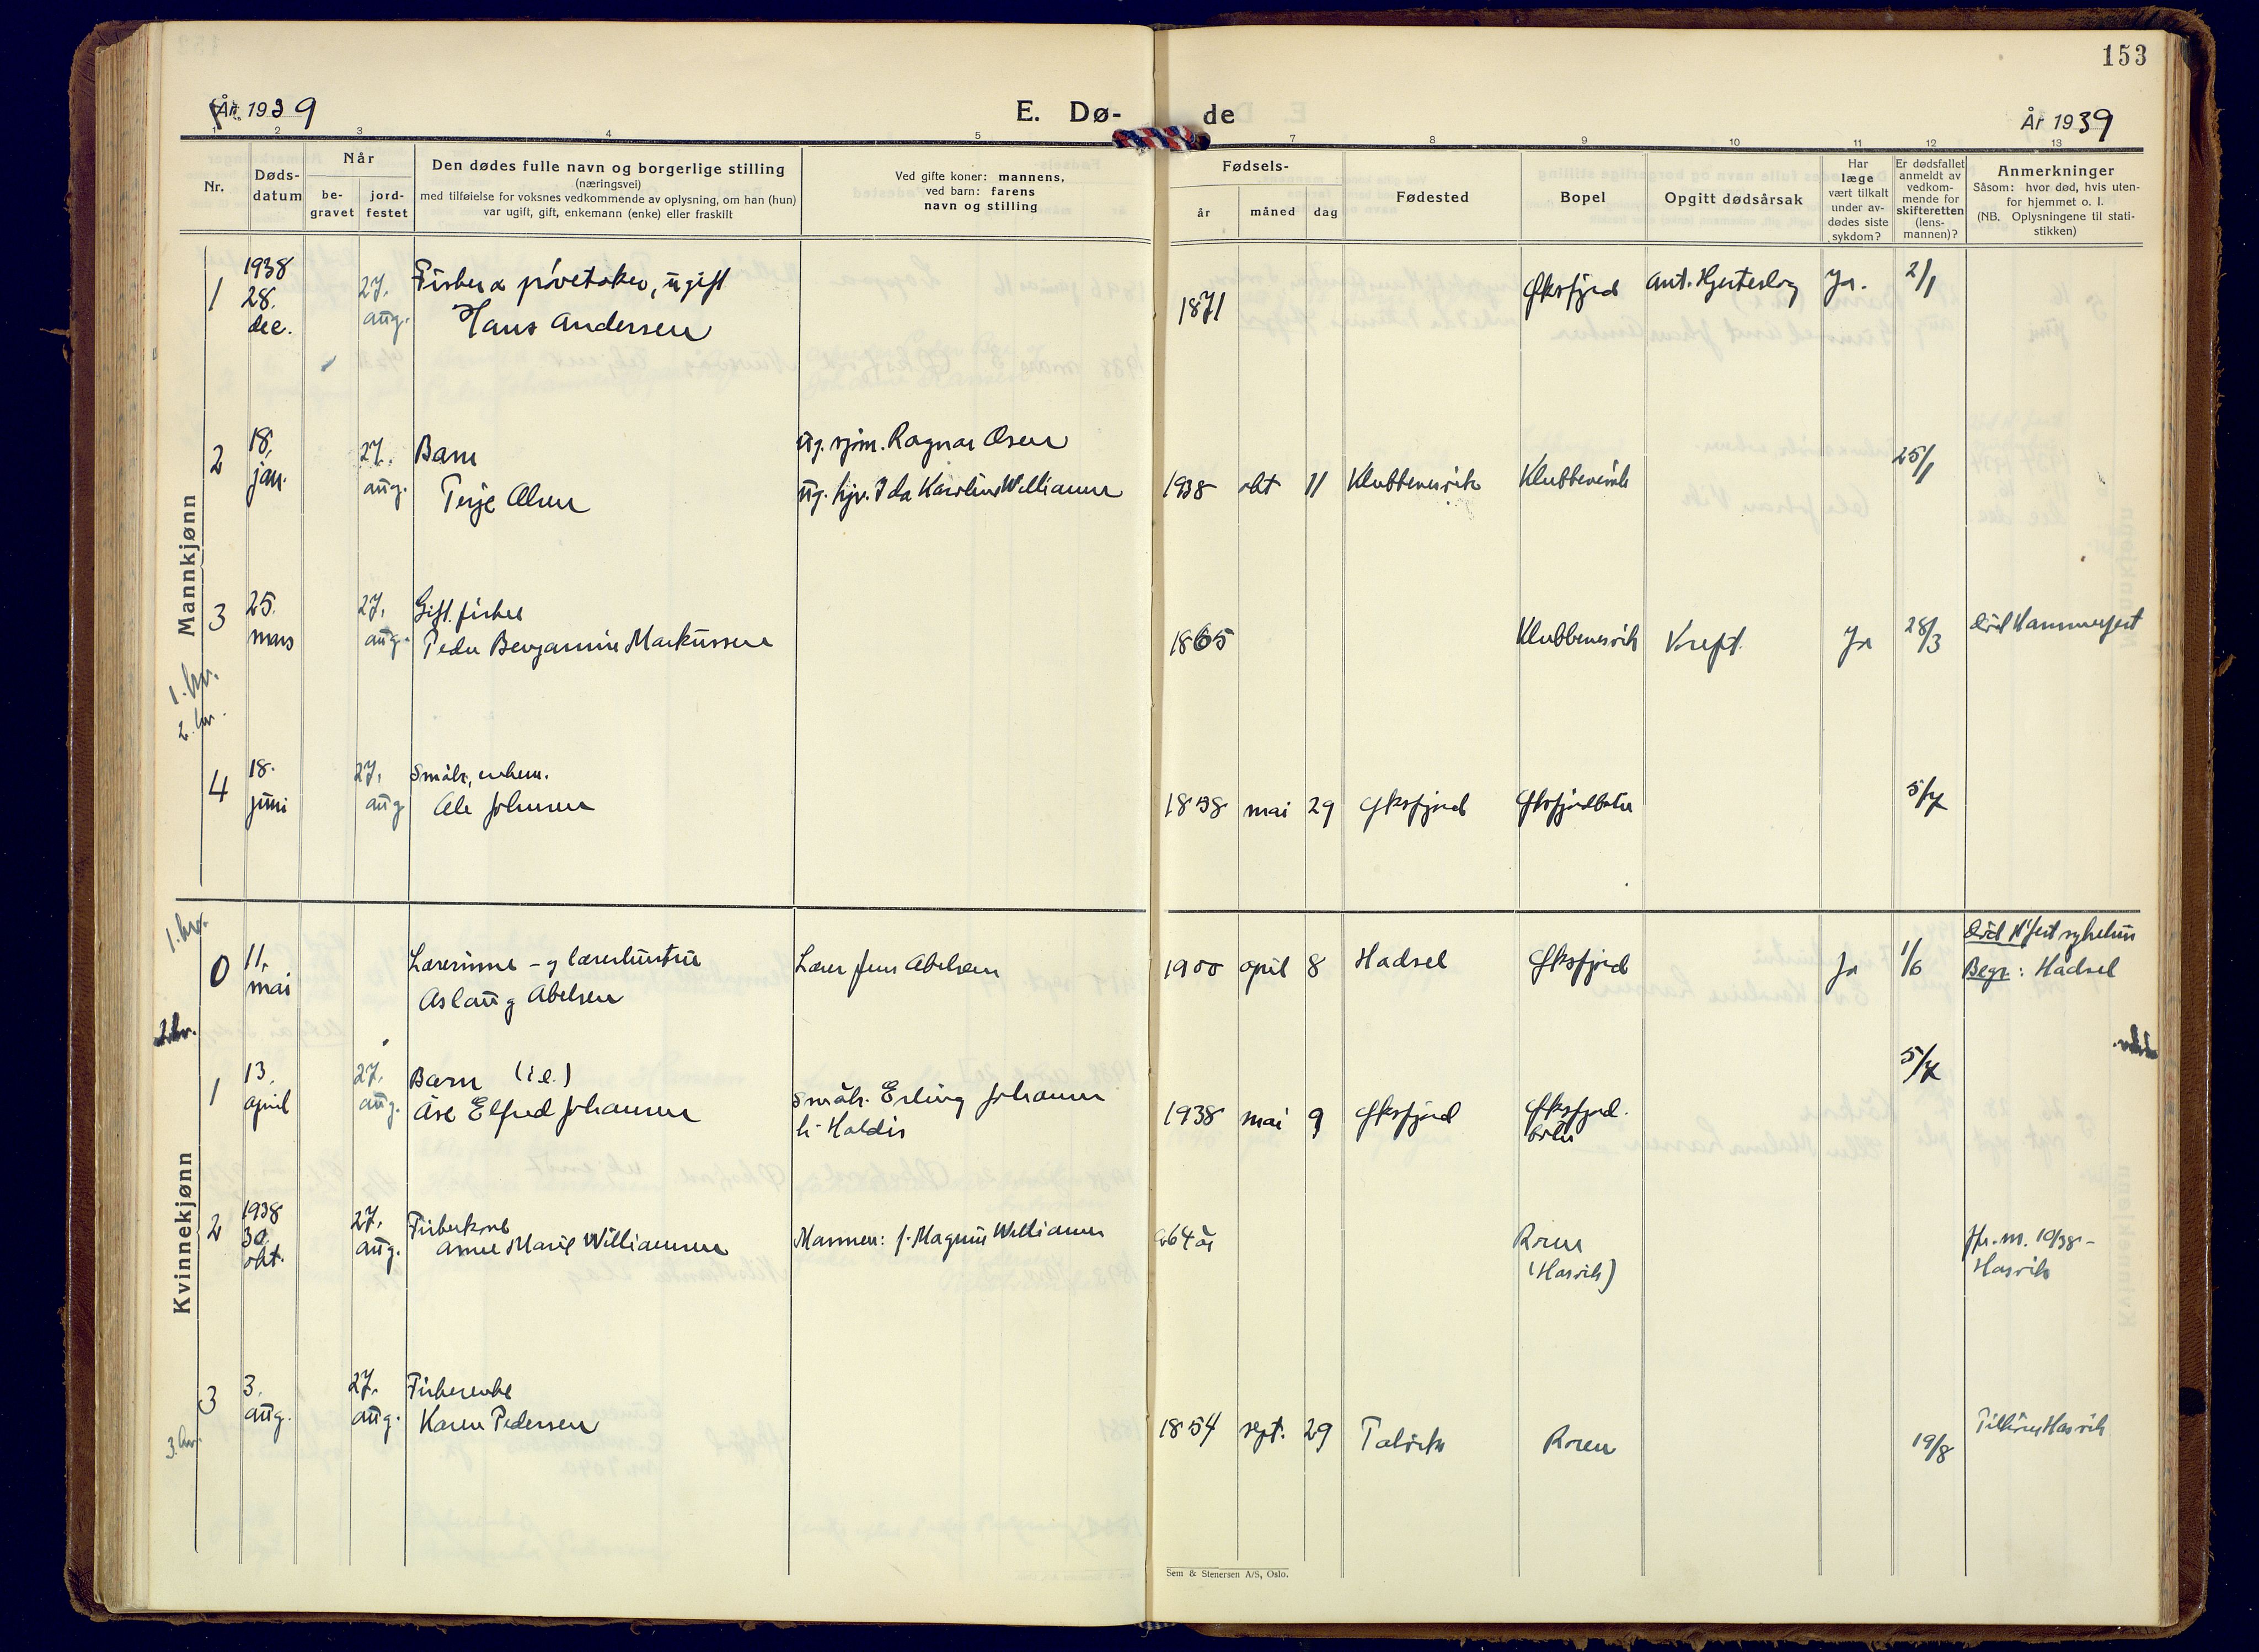 153
År 1939
E. Dø-
de
År 1939
1 2 3 4 5 7 8 9 10 11 12 13
Nr.
Døds-
datum
Når
be-
gravet
jord-
festet
Den dødes fulle navn og borgerlige stilling
(næringsvei)
med tilføielse for voksnes vedkommende av oplysning, om han (hun)
var ugift, gift, enkemann (enke) eller fraskilt
Ved gifte koner: mannens,
ved barn: farens
navn og stilling
Fødsels-
år
måned
dag
Fødested
Bopel
Opgitt dødsårsak
Har
læge
vært tilkalt
under av-
dødes siste
sykdom?
Er dødsfallet
anmeldt av
vedkom-
mende for
skifteretten
(lens-
mannen)?
Anmerkninger
Såsom: hvor død, hvis uten-
for hjemmet o. l.
(NB. Oplysningene til stati-
stikken)
Mannkjønn
1
1938
28.
dec.
27.
aug.
Hans Andersen
1871
Øksfjord
Ja.
2/1
2
18.
jan.
27.
aug.
Barn
Terje Olsen
ug. sjøm. Ragnar Olsen
ug. hjv. Ida Karoline Williamsen
1938 okt 11 Klubbenesvik Klubbenesvik
25/1
3
25.
mars
27.
aug.
Gift. fisker
Peder Benjamin Markussen
1865
Klubbenesvik
Kreft.
Ja
28/3
død Hammerfest
1. kv.
2. kv.
4
18.
juni
27.
aug
Småbr. enkem.
Ole Johansen
1858 mai 29 Øksfjord Øksfjordbotn
5/7
Kvinnekjønn
1. kv.
0
11.
mai
Lærerinne - og lærerhustru
Aslaug Abelsen
Lærer Jens Abelsen
1900 april 8 Hadsel Øksfjord
Ja
1/6
død H'fest sykehus
Begr.: Hadsel
2. kv.
1
13.
april
27.
aug.
Barn
Åse Elfred Johansen
småbr. Erling Johansen
h. Haldis
1938 mai 9 Øksfjord Øksfjord.
botn
5/7
2
1938
30.
okt.
27.
aug.
Fiskerkone
Anne Marie Williamsen
Mannen: f. Magnus Williamsen
64 år
(Hasvik)
10/38 -
Hasvik
3
3.
aug.
27.
aug.
Fiskerenke
Karen Pedersen
1854 sept. 29 Talvik
19/8
Hasvik
3. kv.
Sem & Stenersen A/S, Oslo.